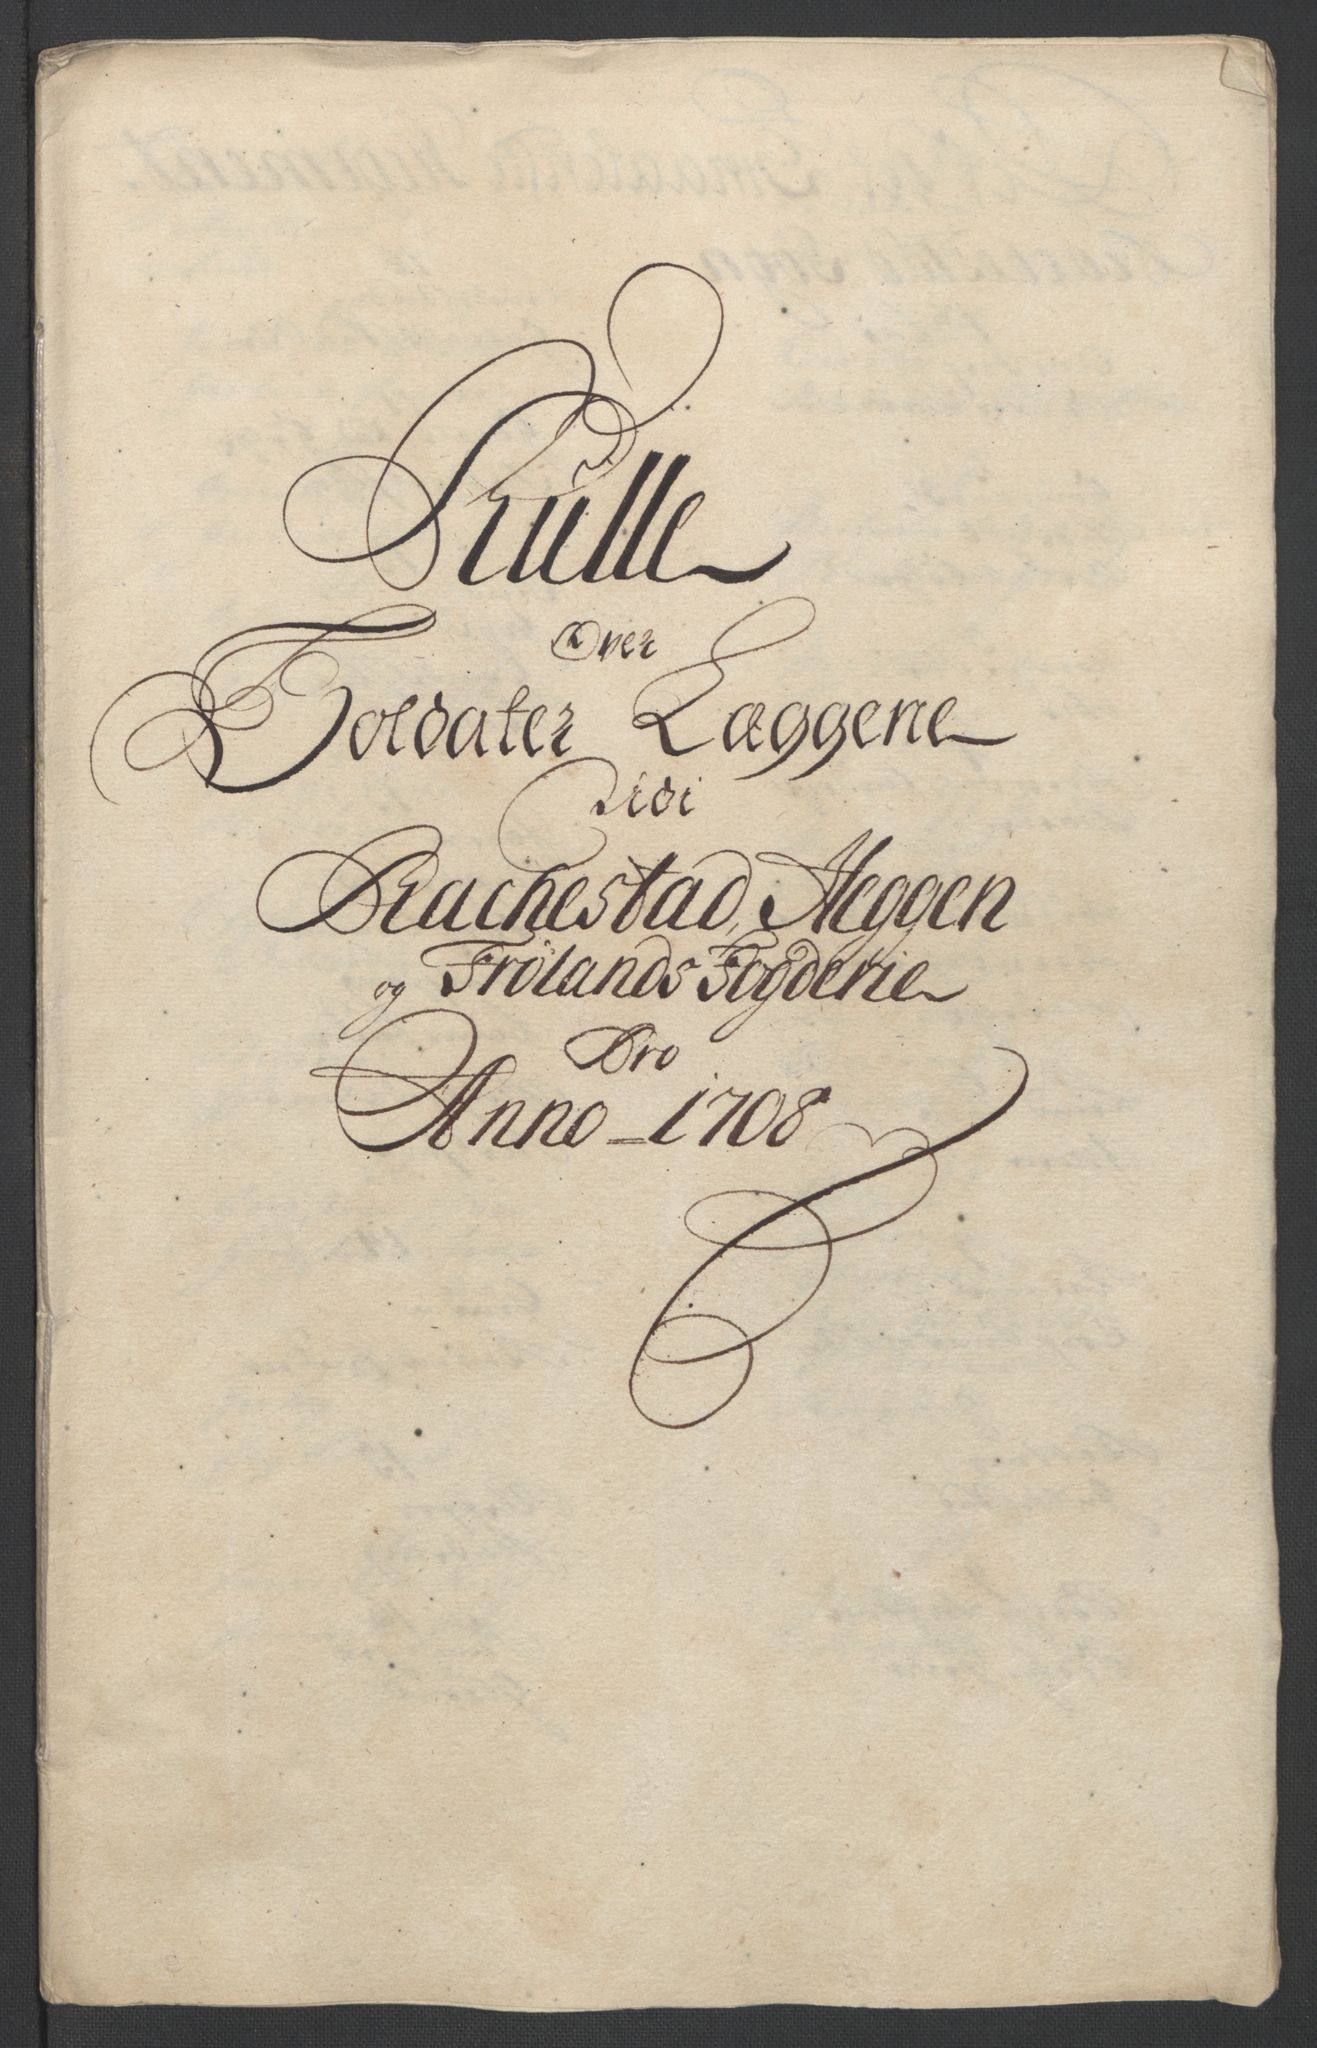 Rulle
Over
Soldater Læggene
udi
Rachestad, Heggen
og Frølands Fogderie
Pro
Anno 1708